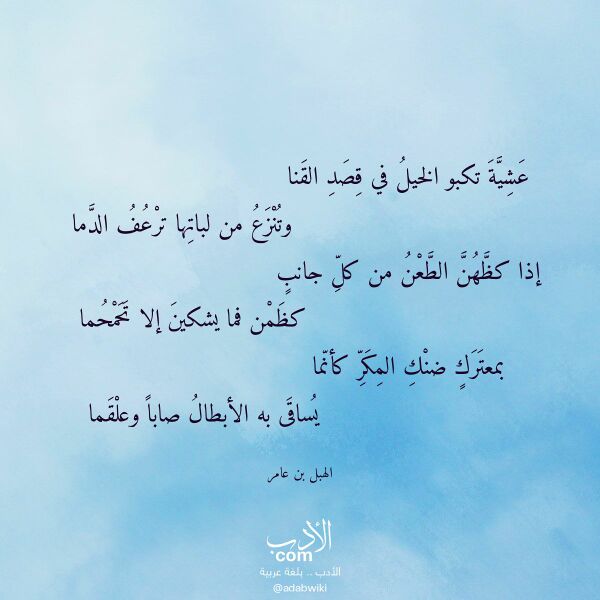 عَشِيَّةَ تكبو الخيلُ في قِصَدِ القَنا
وتُنْزَعُ من لباتِها ترْعُفُ الدَّما
إذا كظَّهُنَّ الطَّعْنُ من كلِّ جانبٍ
كظَمْن فما يشكينَ إلا تَحَمْحُما
بمعتَرَكٍ ضنْكِ المِكَرِّ كأنّما
يُساقَى به الأبطالُ صاباً وعلْقَما
الهبل بن عامر
الأدب
com
الأدب .. بلغة عربية
@adabwiki